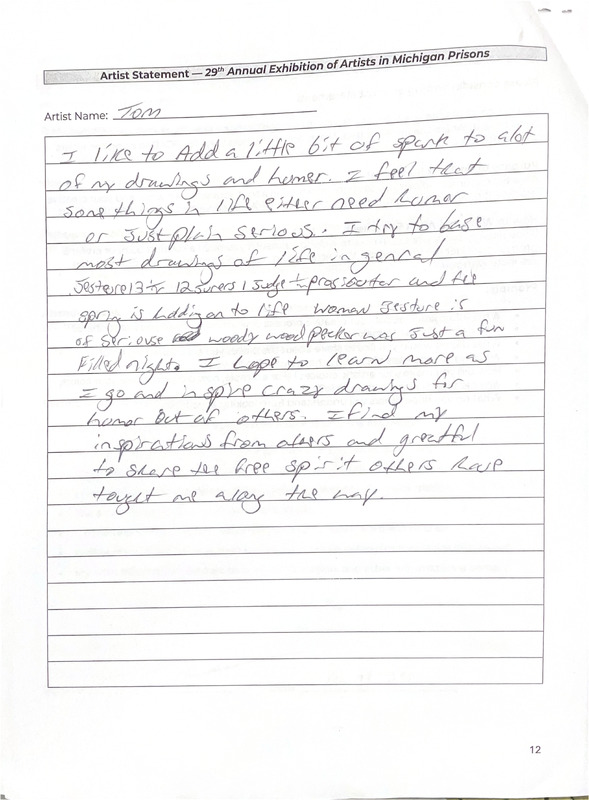 Artist Statement — 29th Annual Exhibition of Artists in Michigan Prisons
Artist Name: Tom
I like to Add a little bit of spunk to alot
of my drawings and homer. I feel that
some things in life either need humor
or Just plain serious. I try to base
most drawings of life in genral
13 ½ 12 Jurers 1 Judge ½ and the
spring is holding on to life woman Jesture is
of Seriouse woody wood pecker was Just a fun
Filled night. I hope to learn more as
I go and inspire crazy drawings for
humor out of others. I find my
inspirations from others and greatful
to share the free spirit others have
tought me along the way.
12